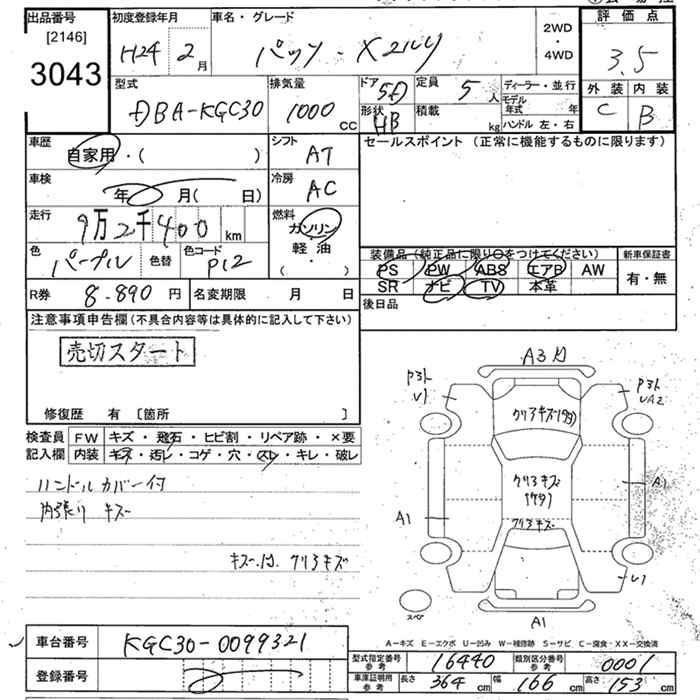 出品番号 初度登録年月 車名・グレード 2WD・4WD 評価点
[2146]
3043 H24 2月 パッソ・X 3.5
型式 排気量 ドア 5D 定員 5人 ディーラー・並行 外装 内装
DBA-KGC30 1000cc 形状 HB 積載 kg モデル年式 年 C B
ハンドル 左・右
車歴 シフト セールスポイント (正常に機能するものに限ります)
自家用・( ) AT
車検 冷房
年 月( 日) AC
走行 燃料
9万2千400km ガソリン
色 色替 色コード 軽油
パープル P12 ・( )
装備品(純正品に限り〇をつけてください) 新車保証書
PS PW ABS エアB AW 有・無
SR ナビ TV 本革
R券 8.890円 名変期限 月 日 後日品
注意事項申告欄(不具合内容等は具体的に記入して下さい)
売切スタート
修復歴 有 〔箇所 〕
検査員 FW キズ・飛石・ヒビ割・リペア跡・×要
記入欄 内装 キズ・汚レ・コゲ・穴・スレ・キレ・破レ
ハンドルカバー付
内張り キズ
キズ・凹 クリアキズ
A3
U1
UA2
クリアキズ
クリアキズ
クリアキズ
A1
A1
U1
スペア
A1
A-キズ E-エクボ U-凹み W-補修跡 S-サビ C-腐食・XX-交換済
車台番号 KGC30-0099321
登録番号
型式指定番号 参考 16440 類別区分番号 参考 0001
車庫証明用 参考 長さ 364cm 幅 166cm 高さ 153cm